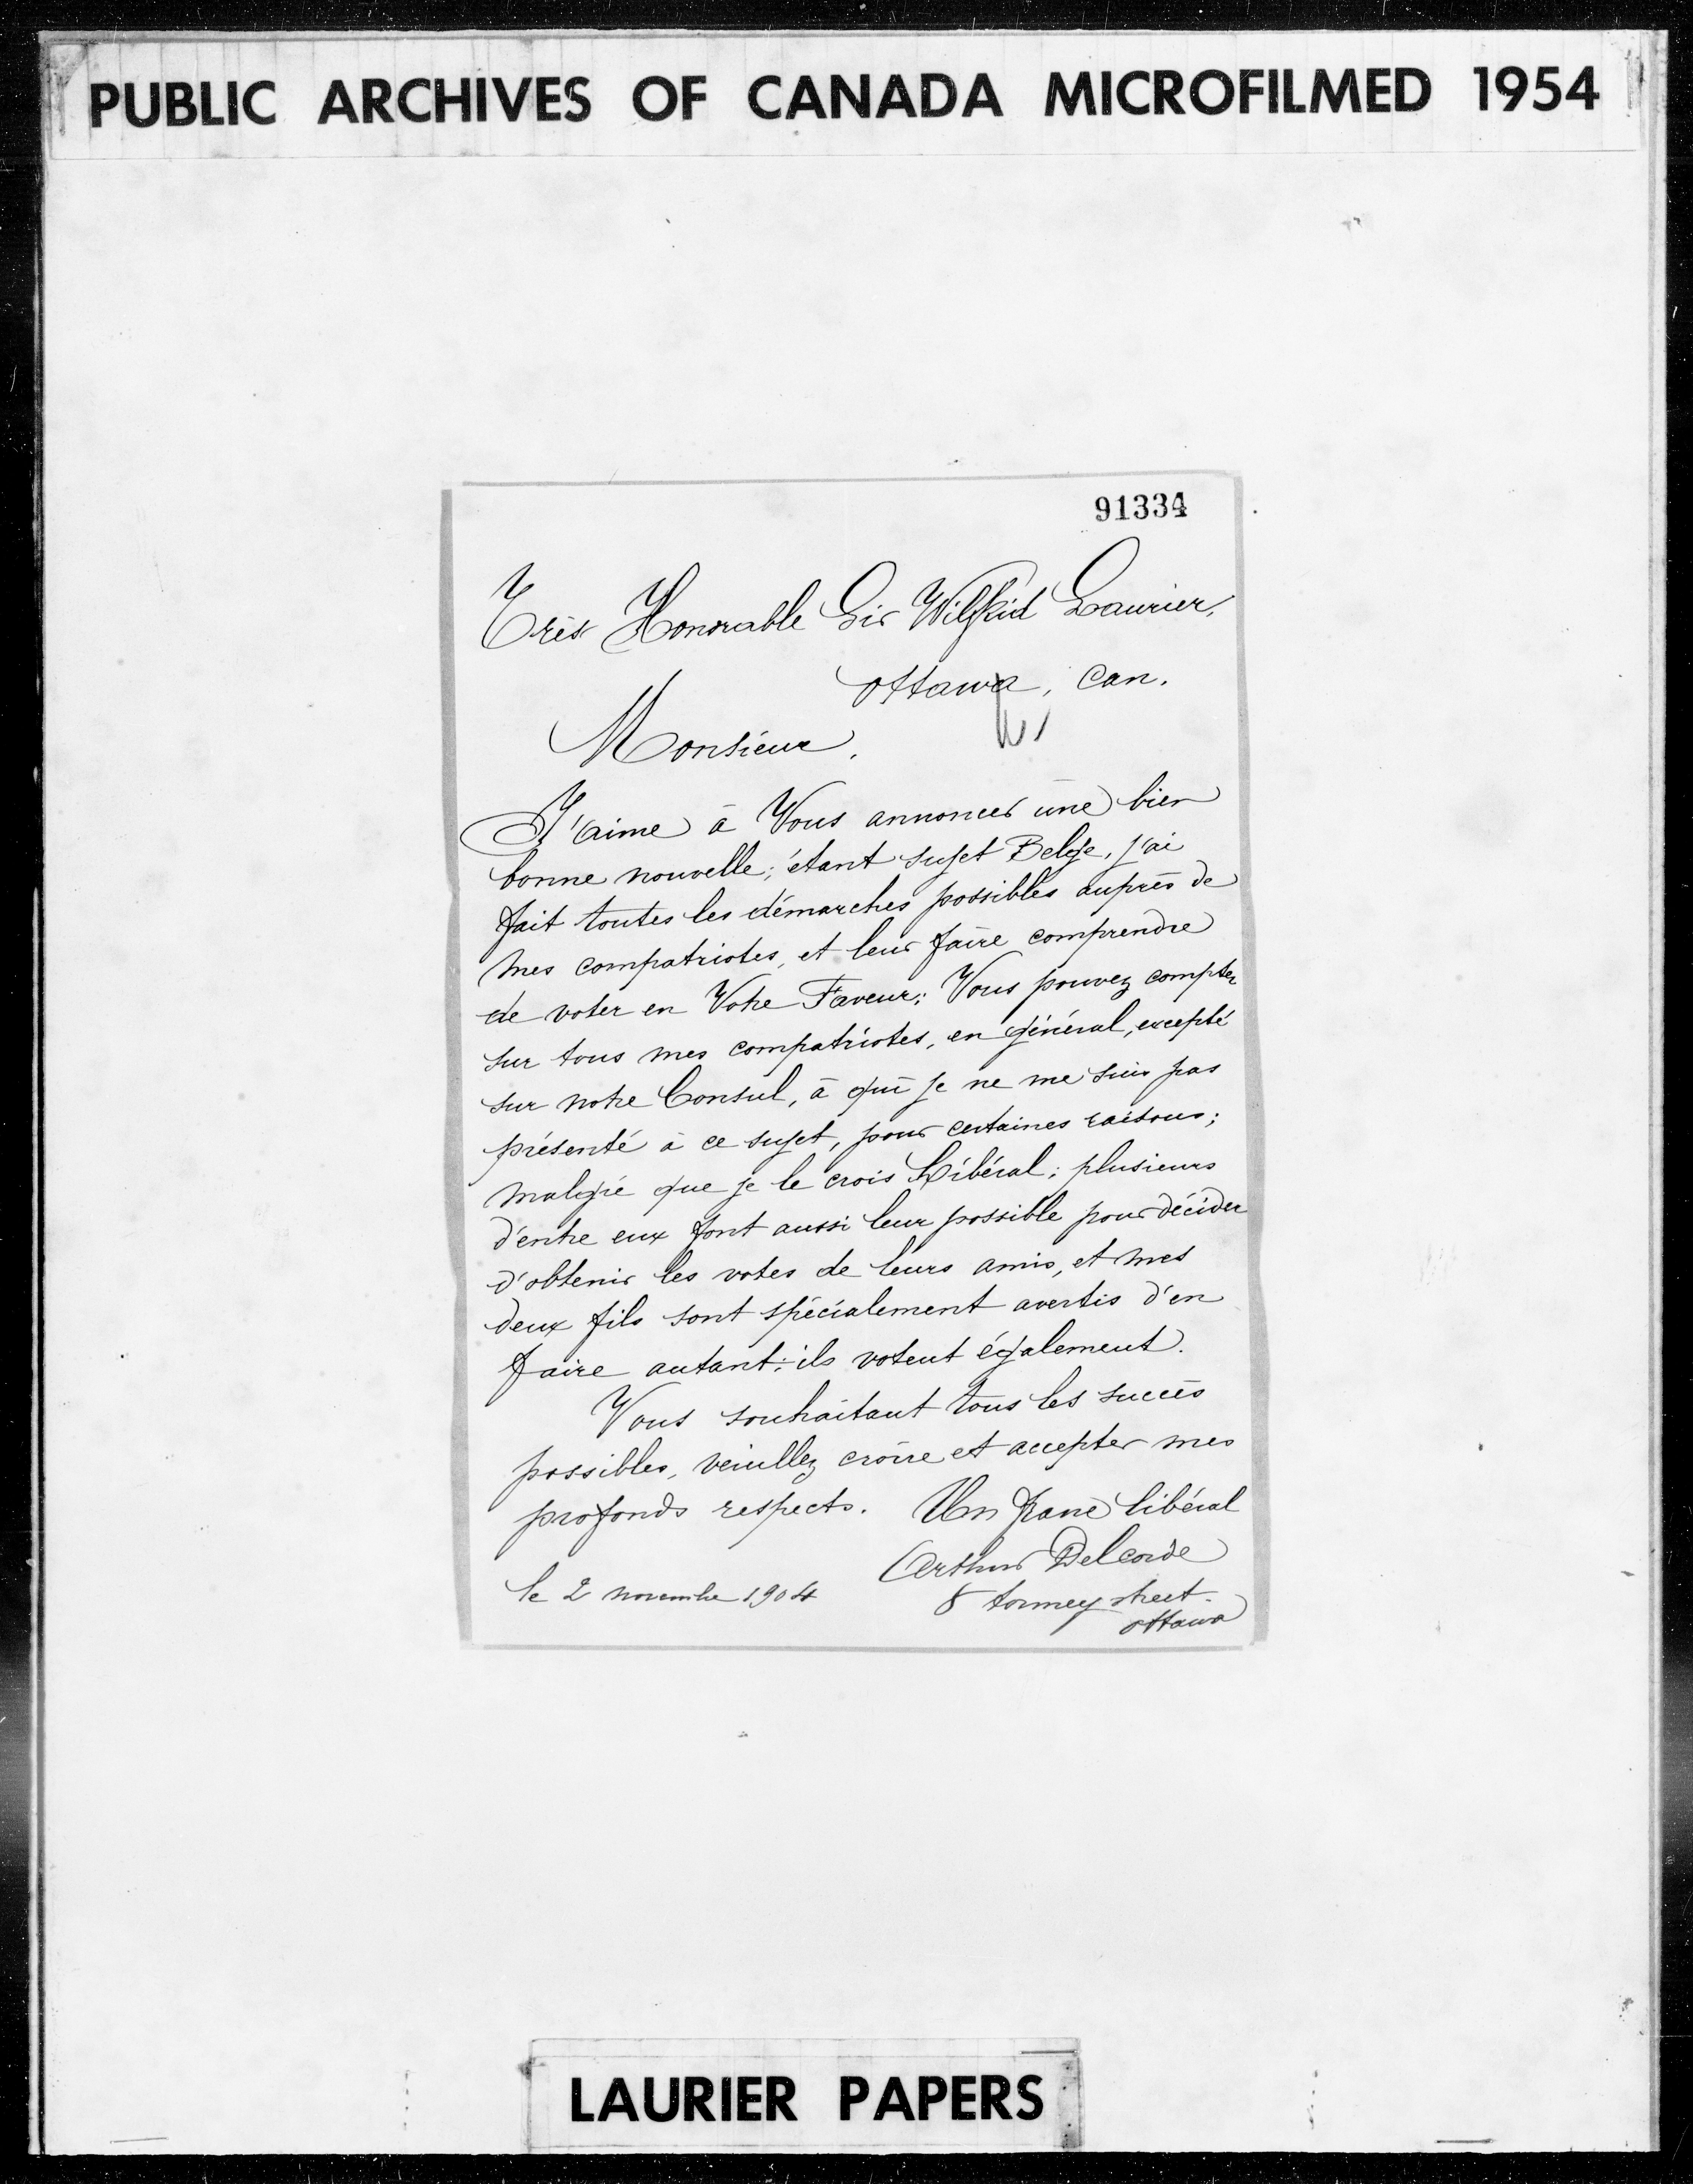 PUBLIC ARCHIVES OF CANADA MICROFILMED 1954
91334
Très Honorable Sir Wilfrid Laurier,
Ottawa, Can.
Monsieur,
J'aime à Vous annoncer une bien
bonne nouvelle; étant sujet Belge, j'ai
fait toutes les démarches possibles auprès de
mes compatriotes, et leur faire comprendre
de voter en Votre Faveur; Vous pouvez compter
sur tous mes compatriotes, en général, excepté
sur notre Consul, à qui je ne me suis pas
présenté à ce sujet, pour certaines raisons;
malgré que je le crois Libéral; plusieurs
d'entre eux font aussi leur possible pour décider
d'obtenir les votes de leurs amis, et mes
deux fils sont spécialement avertis d'en
faire autant; ils votent également.
Vous souhaitant tous les succès
possibles, veuillez croire et accepter mes
profonds respects. Un franc libéral
Arthur Delcorde
le 2 novembre 1904 8 tormey street.
Ottawa
LAURIER PAPERS